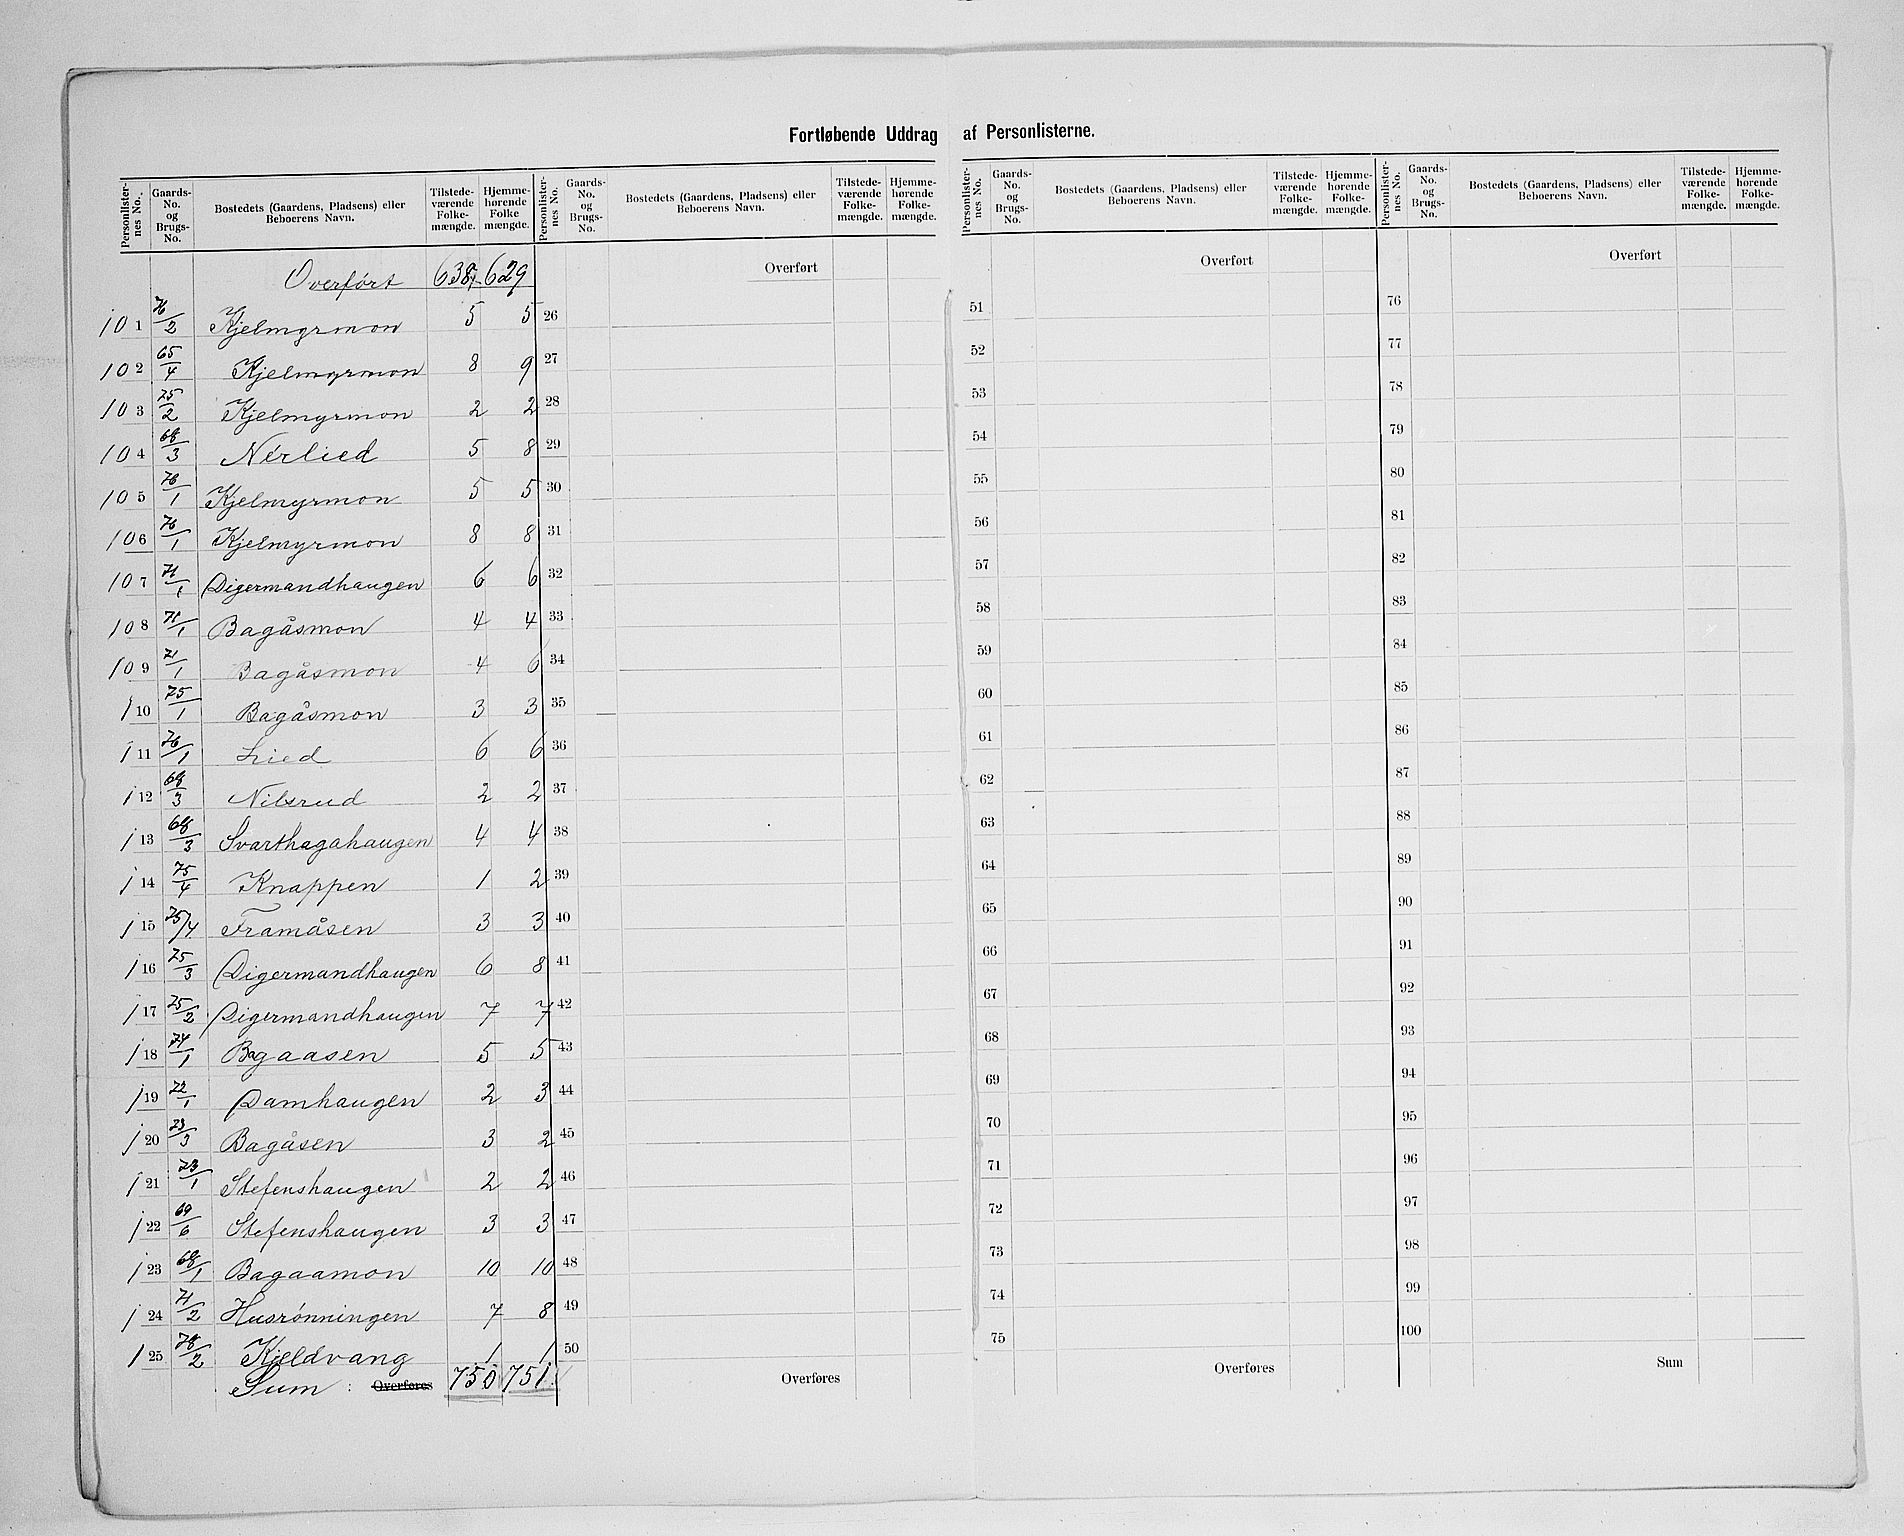 Fortløbende Uddrag af Personlisterne.
Personlisternes No. Gaards-No. og Brugs-No. Bostedets (Gaardens, Pladsens) eller Beboerens Navn. Tilstedeværende Folkemængde. Hjemmehørende Folkemængde.
Overført 638 629
101 76/2 Kjelmyrmon 5 5
102 65/4 Kjelmyrmon 8 9
103 75/2 Kjelmyrmon 2 2
104 68/3 Nerlied 5 8
105 76/1 Kjelmyrmon 5 5
106 76/1 Kjelmyrmon 8 8
107 71/1 Digermandhaugen 6 6
108 71/1 Bagåsmon 4 4
109 71/1 Bagåsmon 4 6
110 75/1 Bagåsmon 3 3
111 76/1 Lied 6 6
112 68/3 Nilsrud 2 2
113 68/3 Svarthagahaugen 4 4
114 75/4 Knappen 1 2
115 75/4 Framåsen 3 3
116 75/3 Digermandhaugen 6 8
117 75/2 Digermandhaugen 7 7
118 74/1 Bagaasen 5 5
119 72/1 Damhaugen 2 3
120 73/3 Bagåsen 3 2
121 73/1 Stefenshaugen 2 2
122 69/6 Stefenshaugen 3 3
123 68/1 Bagaamon 10 10
124 71/2 Husrønningen 7 8
125 78/2 Kjeldvang 1 1
Sum : Overføres 750 751
Personlisternes No. Gaards-No. og Brugs-No. Bostedets (Gaardens, Pladsens) eller Beboerens Navn. Tilstedeværende Folkemængde. Hjemmehørende Folkemængde.
Overført
26
27
28
29
30
31
32
33
34
35
36
37
38
39
40
41
42
43
44
45
46
47
48
49
50
Overføres
Personlisternes No. Gaards-No. og Brugs-No. Bostedets (Gaardens, Pladsens) eller Beboerens Navn. Tilstedeværende Folkemængde. Hjemmehørende Folkemængde.
Overført
51
52
53
54
55
56
57
58
59
60
61
62
63
64
65
66
67
68
69
70
71
72
73
74
75
Overføres
Personlisternes No. Gaards-No. og Brugs-No. Bostedets (Gaardens, Pladsens) eller Beboerens Navn. Tilstedeværende Folkemængde. Hjemmehørende Folkemængde.
Overført
76
77
78
79
80
81
82
83
84
85
86
87
88
89
90
91
92
93
94
95
96
97
98
99
100
Sum